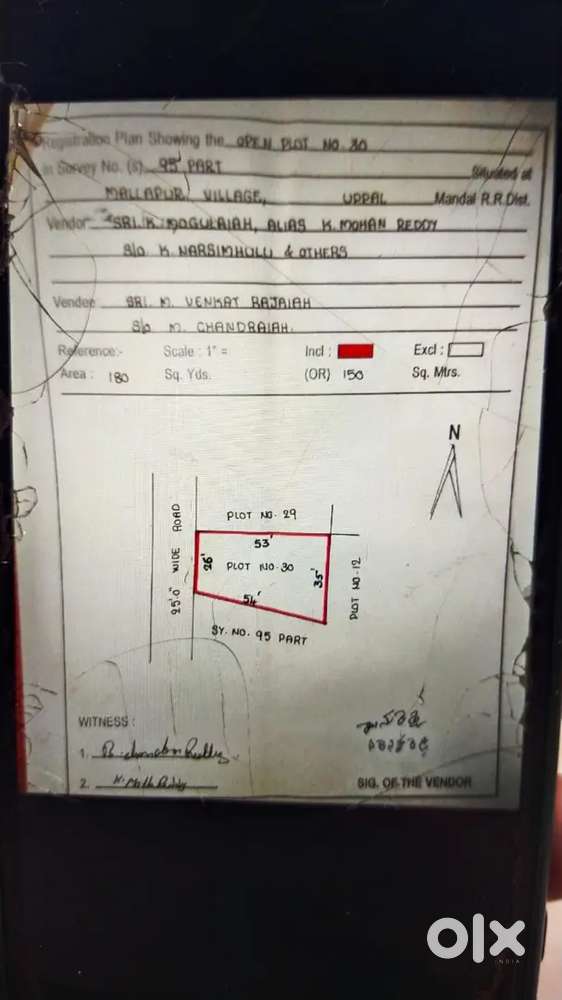 Registration Plan Showing the OPEN PLOT NO. 30
in Survey No. (s) 95 PART Situated at
MALLAPUR VILLAGE, UPPAL Mandal R.R.Dist.
Vendor SRI. K. MOGULAIAH, ALIAS K. MOHAN REDDY
S/o K. NARSIMHULU & OTHERS
Vendee SRI. M. VENKAT RAJAIAH
S/o M. CHANDRAIAH.
Reference:- Scale : 1" = Incl : Excl :
Area : 180 Sq. Yds. (OR) 150 Sq. Mtrs.
N
PLOT NO. 29
25'.0" WIDE ROAD
53'
26'
PLOT NO. 30
35'
54'
PLOT NO. 12
SY. NO. 95 PART
WITNESS :
1.
2.
SIG. OF THE VENDOR
olx
INDIA